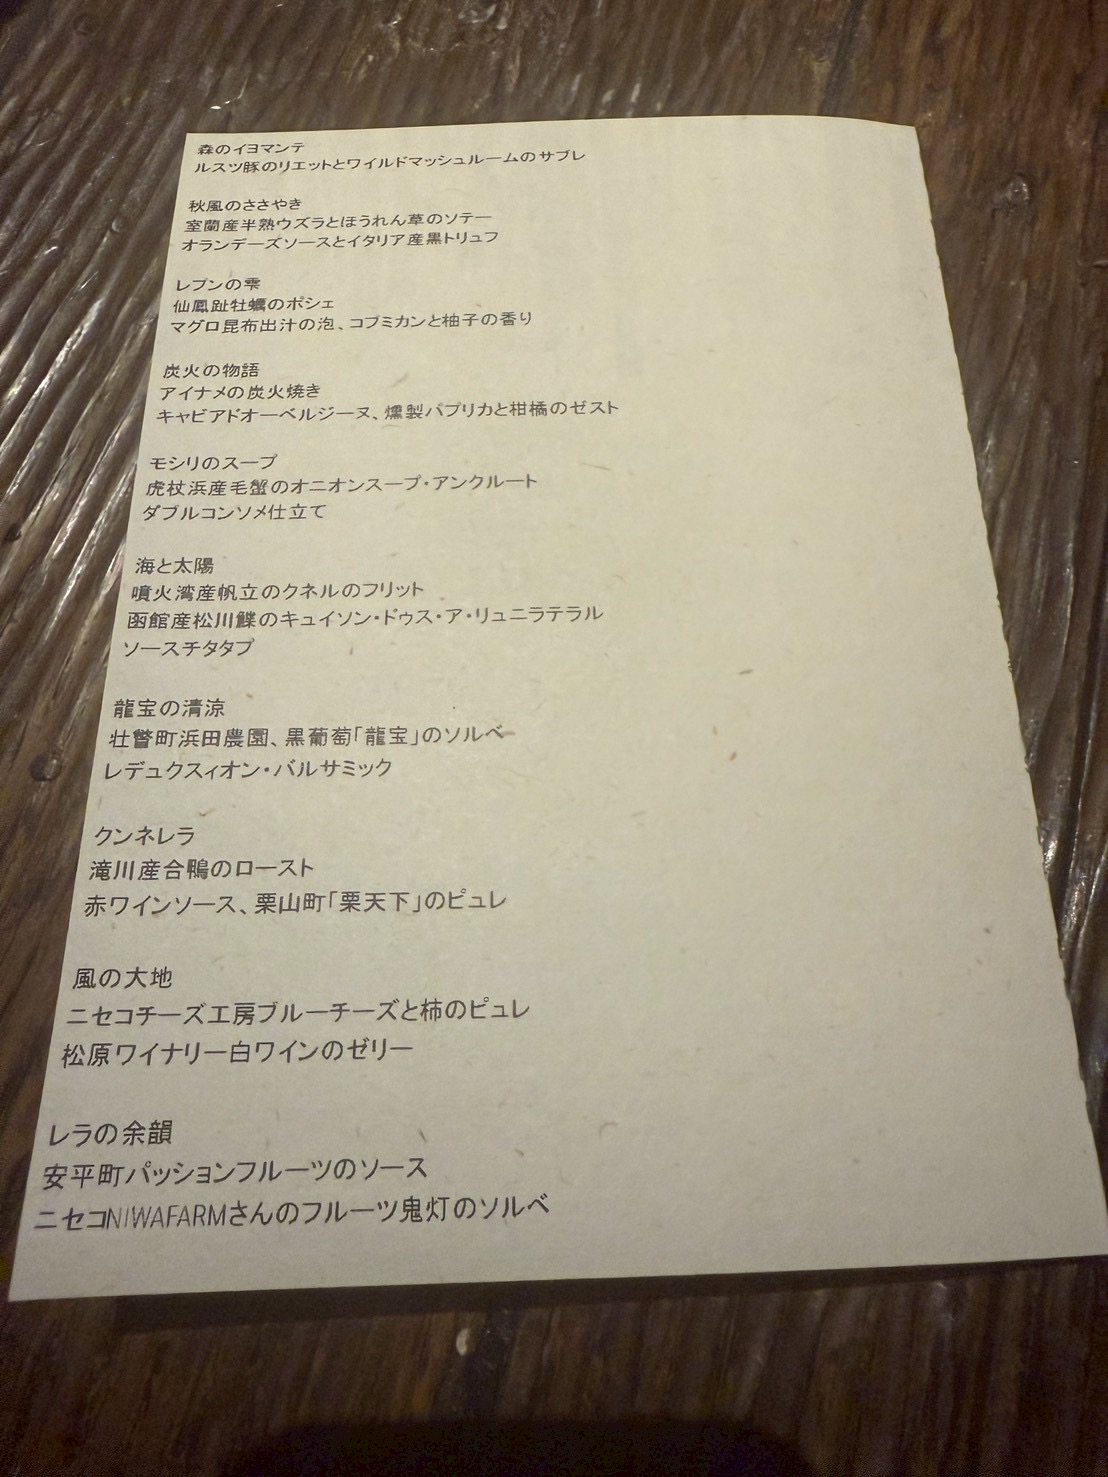 森のイヨマンテ
ルスツ豚のリエットとワイルドマッシュルームのサブレ
秋風のささやき
室蘭産半熟ウズラとほうれん草のソテー
オランデーズソースとイタリア産黒トリュフ
レプンの雫
仙鳳趾牡蠣のポシェ
マグロ昆布出汁の泡、コブミカンと柚子の香り
炭火の物語
アイナメの炭火焼き
キャビアドオーベルジーヌ、燻製パプリカと柑橘のゼスト
モシリのスープ
虎杖浜産毛蟹のオニオンスープ・アンクルート
ダブルコンソメ仕立て
海と太陽
噴火湾産帆立のクネルのフリット
函館産松川鰈のキュイソン・ドゥス・ア・リュニラテラル
ソースチタタプ
龍宝の清涼
壮瞥町浜田農園、黒葡萄「龍宝」のソルベ
レデュクスィオン・バルサミック
クンネレラ
滝川産合鴨のロースト
赤ワインソース、栗山町「栗天下」のピュレ
風の大地
ニセコチーズ工房ブルーチーズと柿のピュレ
松原ワイナリー白ワインのゼリー
レラの余韻
安平町パッションフルーツのソース
ニセコNIWAFARMさんのフルーツ鬼灯のソルベ